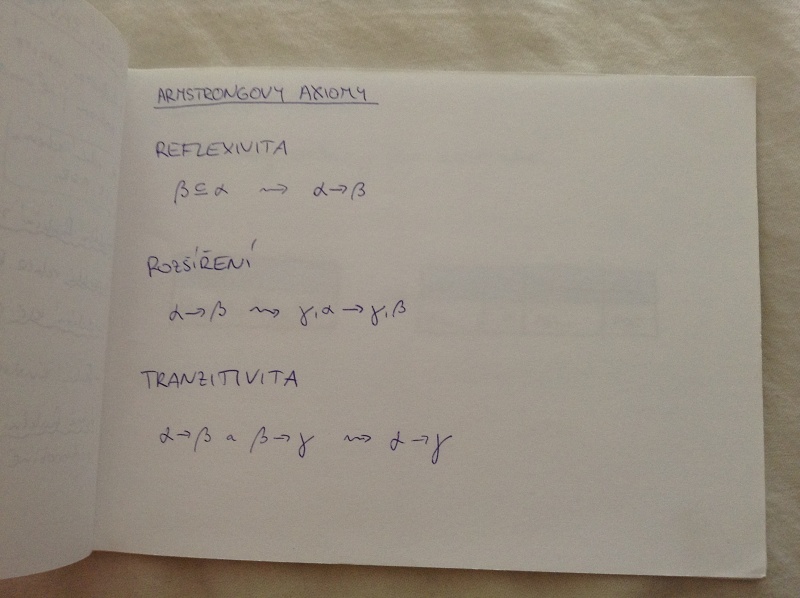 ARMSTRONGOVY AXIOMY
REFLEXIVITA
β ⊆ α ⇝ α → β
ROZŠÍŘENÍ
α → β ⇝ γ, α → γ, β
TRANZITIVITA
α → β a β → γ ⇝ α → γ